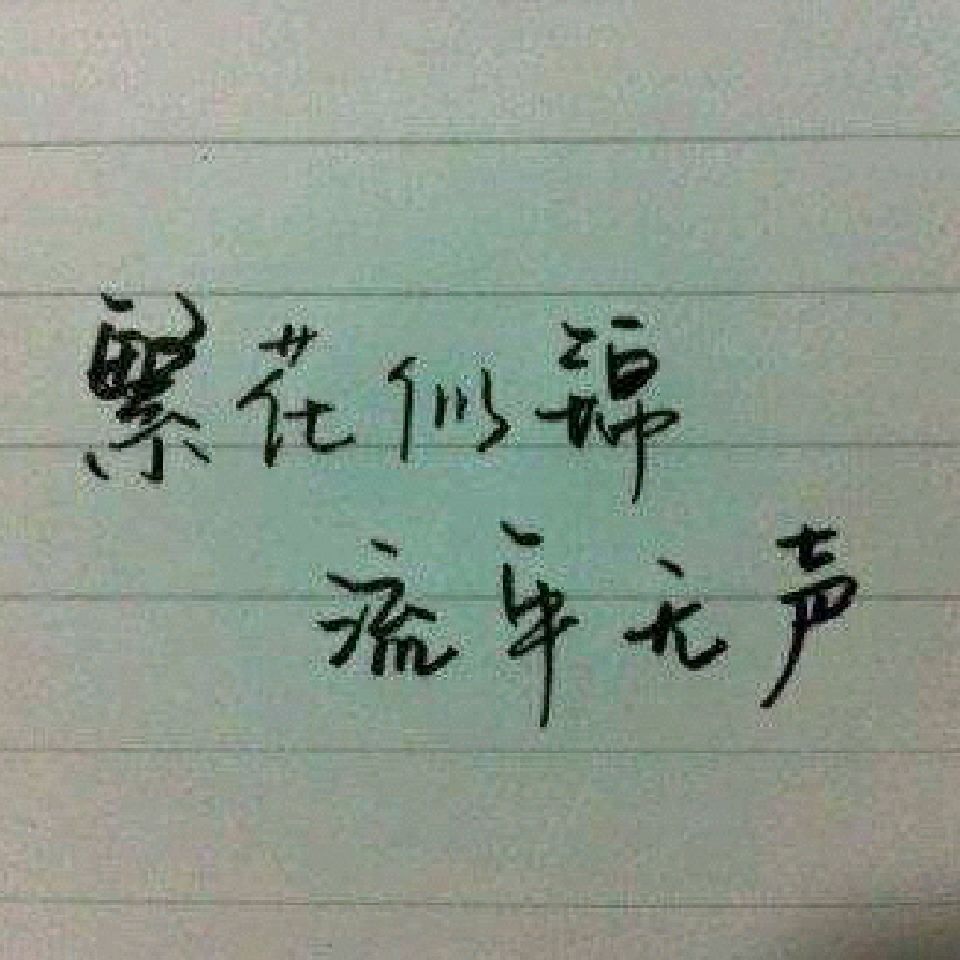 繁花似锦
流年无声